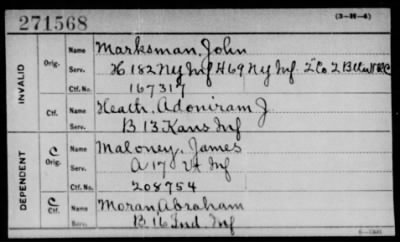 271568
(3—H—4)
INVALID
Orig. Name Marksman, John
Serv. H 182 Ny Inf H 69 Ny Inf 2" Co 2 Btln VRC
Ctf. No. 167317
Ctf. Name Heath, Adoniram J
Serv. B 13 Kans Inf
DEPENDENT
C Orig. Name Maloney, James
Serv. A 17 Vt Inf
Ctf. No. 208754
C Ctf. Name Moran, Abraham
Serv. B 16 Ind. Inf